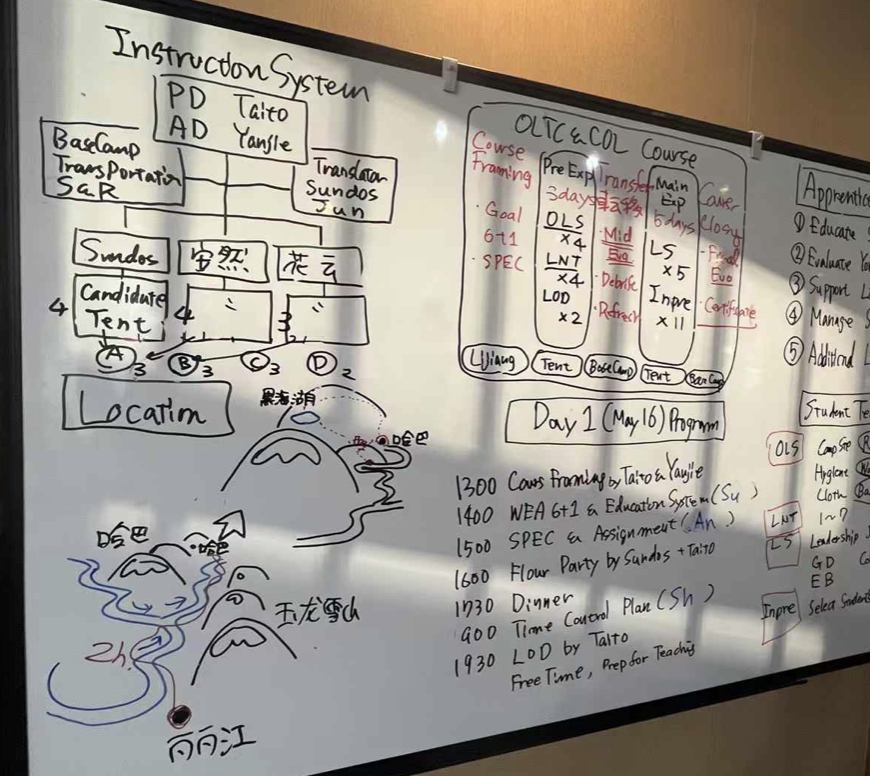 Instruction System
PD Taito
AD Yanjie
BaseCamp
Transportation
SaR
Translator
Sundos
Jun
Sundos
花云
Candidate
Tent
4
4
3
〃
〃
A 3
B 3
C 3
D 2
Location
黑海湖
哈巴
哈巴
哈巴
玉龙雪山
2h
丽江
OLTC & COL Course
Course
Framing
・Goal
6+1
・SPEC
Pre Exp
3days
OLS
×4
LNT
×4
LOD
×2
Transfer
転移
・Mid
Evo
・Debrife
・Refresh
Main
Exp
6days
LS
×5
Inpre
×11
Closy
・Final
Evo
・Certificate
Lijiang
Tent
BaseCamp
Tent
BaseCamp
Day 1 (May 16) Program
1300 Cours Framing by Taito & Yanjie
1400 WEA 6+1 & Education System (Su )
1500 SPEC & Assignment (An )
1600 Flour Party by Sundos + Taito
1730 Dinner
900 Time Control Plan (Sh )
1930 LOD by Taito
Free Time, Prep for Teaching
Apprentice
① Educate
② Evaluate
③ Support
④ Manage
⑤ Additional
Student Te
OLS
Hygiene
Cloth
LNT 1~7
LS Leadership
GD
EB
Inpre Select Students